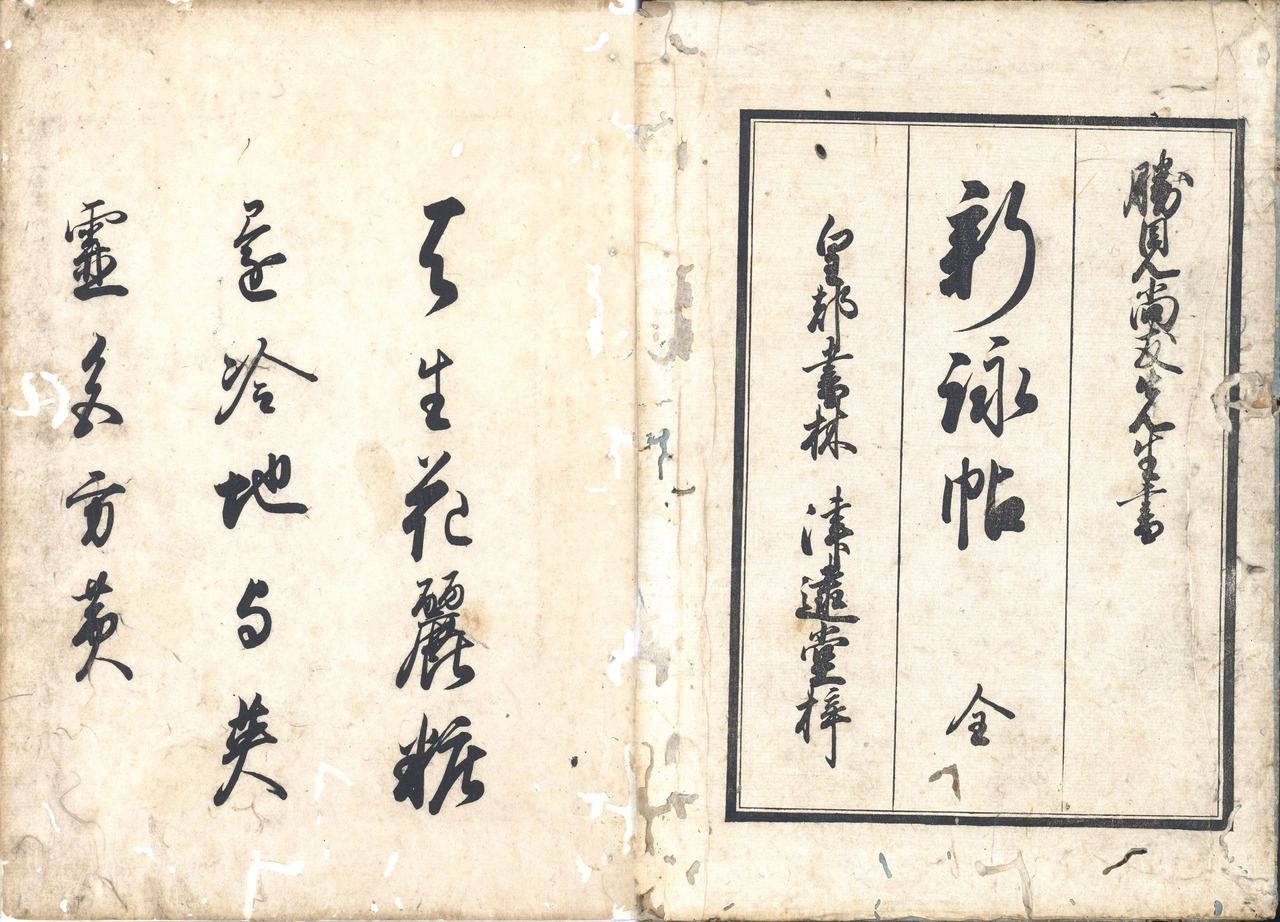 勝見尚友先生書
新詠帖 全
皇都書林 津逮堂梓
天生花麗粧
還冷地与英
靈多黄